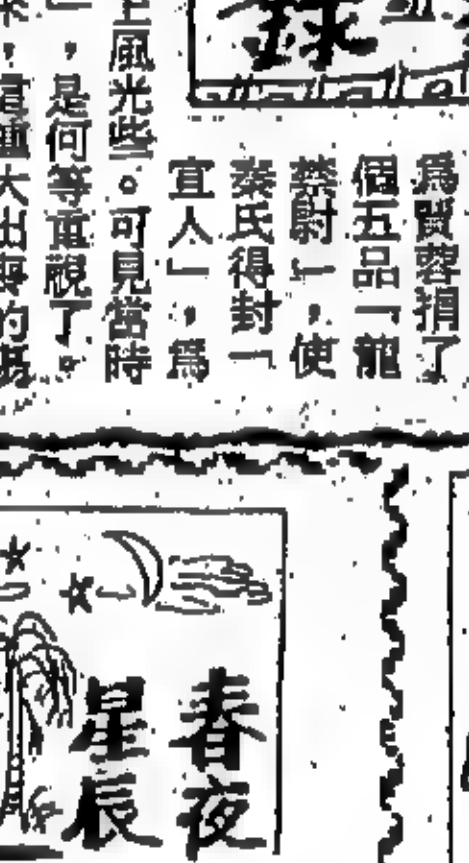 球
為賈蓉捐了
個五品「龍
禁尉」，使
秦氏得封「
宜人」，為
上風光些。可見當時
」，是何等重視了。
大出喪的
春夜
星辰